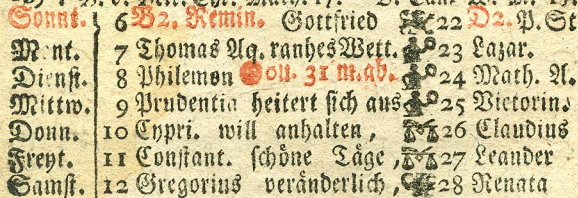 Sonnt. 6 B2. Remin. Gottfried 22 D2. P. St
Mont. 7 Thomas Aq. ranhes Wett. 23 Lazar.
Dienst. 8 Philemon Voll. 31 m. ab. 24 Math. A.
Mittw. 9 Prudentia heitert sich aus 25 Victorin.
Donn. 10 Cypri. will anhalten, 26 Claudius
Freyt. 11 Constant. schöne Täge, 27 Leander
Samst. 12 Gregorius veränderlich, 28 Renata